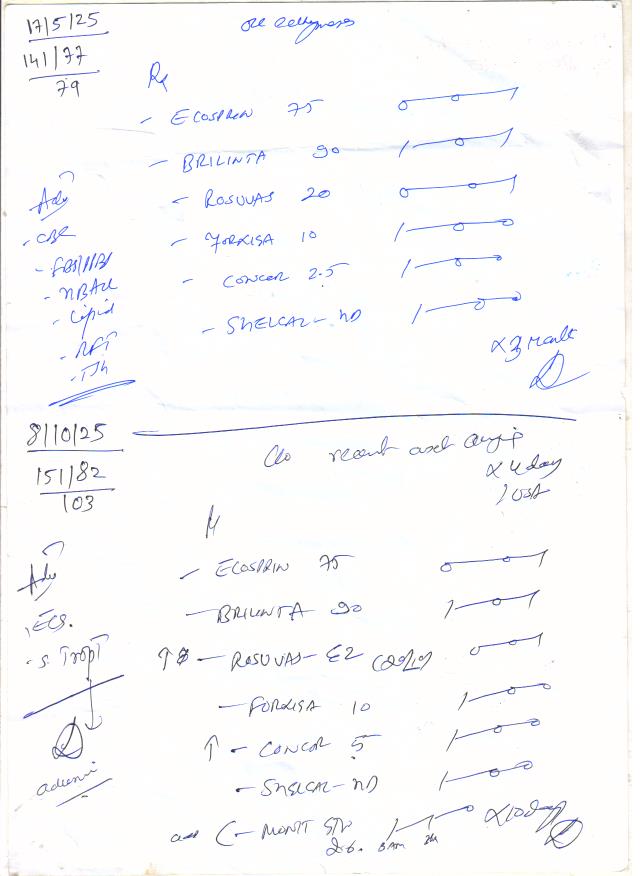 17/5/25
141/77
79
Rx
- ECOSPRIN 75 0—0—1
- BRILINTA 90 1—0—1
- ROSUVAS 20 0—0—1
- FORXIGA 10 1—0—0
- CONCOR 2.5 1—0—0
- SHELCAL-HD 1—0—0
x 3 Month
Adv
- CBC
- FBS/PPBS
- HBA1C
- Lipid
- RFT
- TSH
8/10/25
151/82
103
C/o recent onset angina
x 4 day
? USA
Rx
- ECOSPRIN 75 0—0—1
- BRILINTA 90 1—0—1
↑ - ROSUVAS-EZ (20/10) 0—0—1
- FORXIGA 10 1—0—0
↑ - CONCOR 5 1—0—0
- SHELCAL-HD 1—0—0
add - MONIT GTN 2.6 1—1—0 x 10 days
8 AM
Adv
, ECG.
- S. TropT